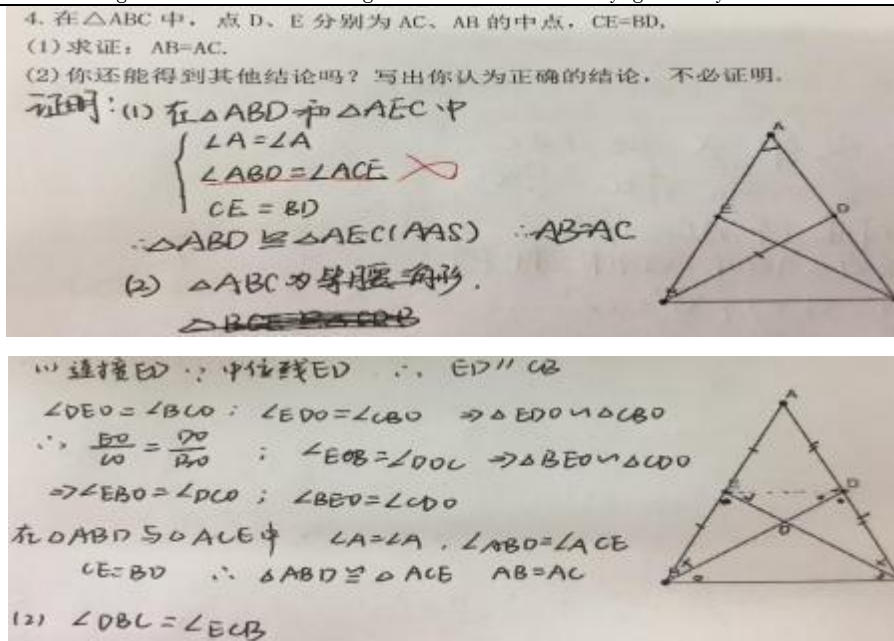 4. 在△ABC 中，点 D、E 分别为 AC、AB 的中点，CE=BD，
(1)求证：AB=AC.
(2)你还能得到其他结论吗？写出你认为正确的结论，不必证明。
证明：(1) 在△ABD 和△AEC 中
∠A=∠A
∠ABD=∠ACE
CE=BD
∴△ABD≌△AEC(AAS) ∴AB=AC
(2) △ABC为等腰三角形.
A
E
D
B
(1) 连接ED ∵ 中位线ED ∴ ED∥CB
∠DEO=∠BCO；∠EDO=∠CBO ⇒△EDO∽△CBO
∴ EO/CO = DO/BO ；∠EOB=∠DOC ⇒△BEO∽△CDO
⇒∠EBO=∠DCO；∠BEO=∠CDO
在△ABD与△ACE中 ∠A=∠A，∠ABD=∠ACE
CE=BD ∴ △ABD≌△ACE AB=AC
(2) ∠DBC=∠ECB
A
E
D
O
B